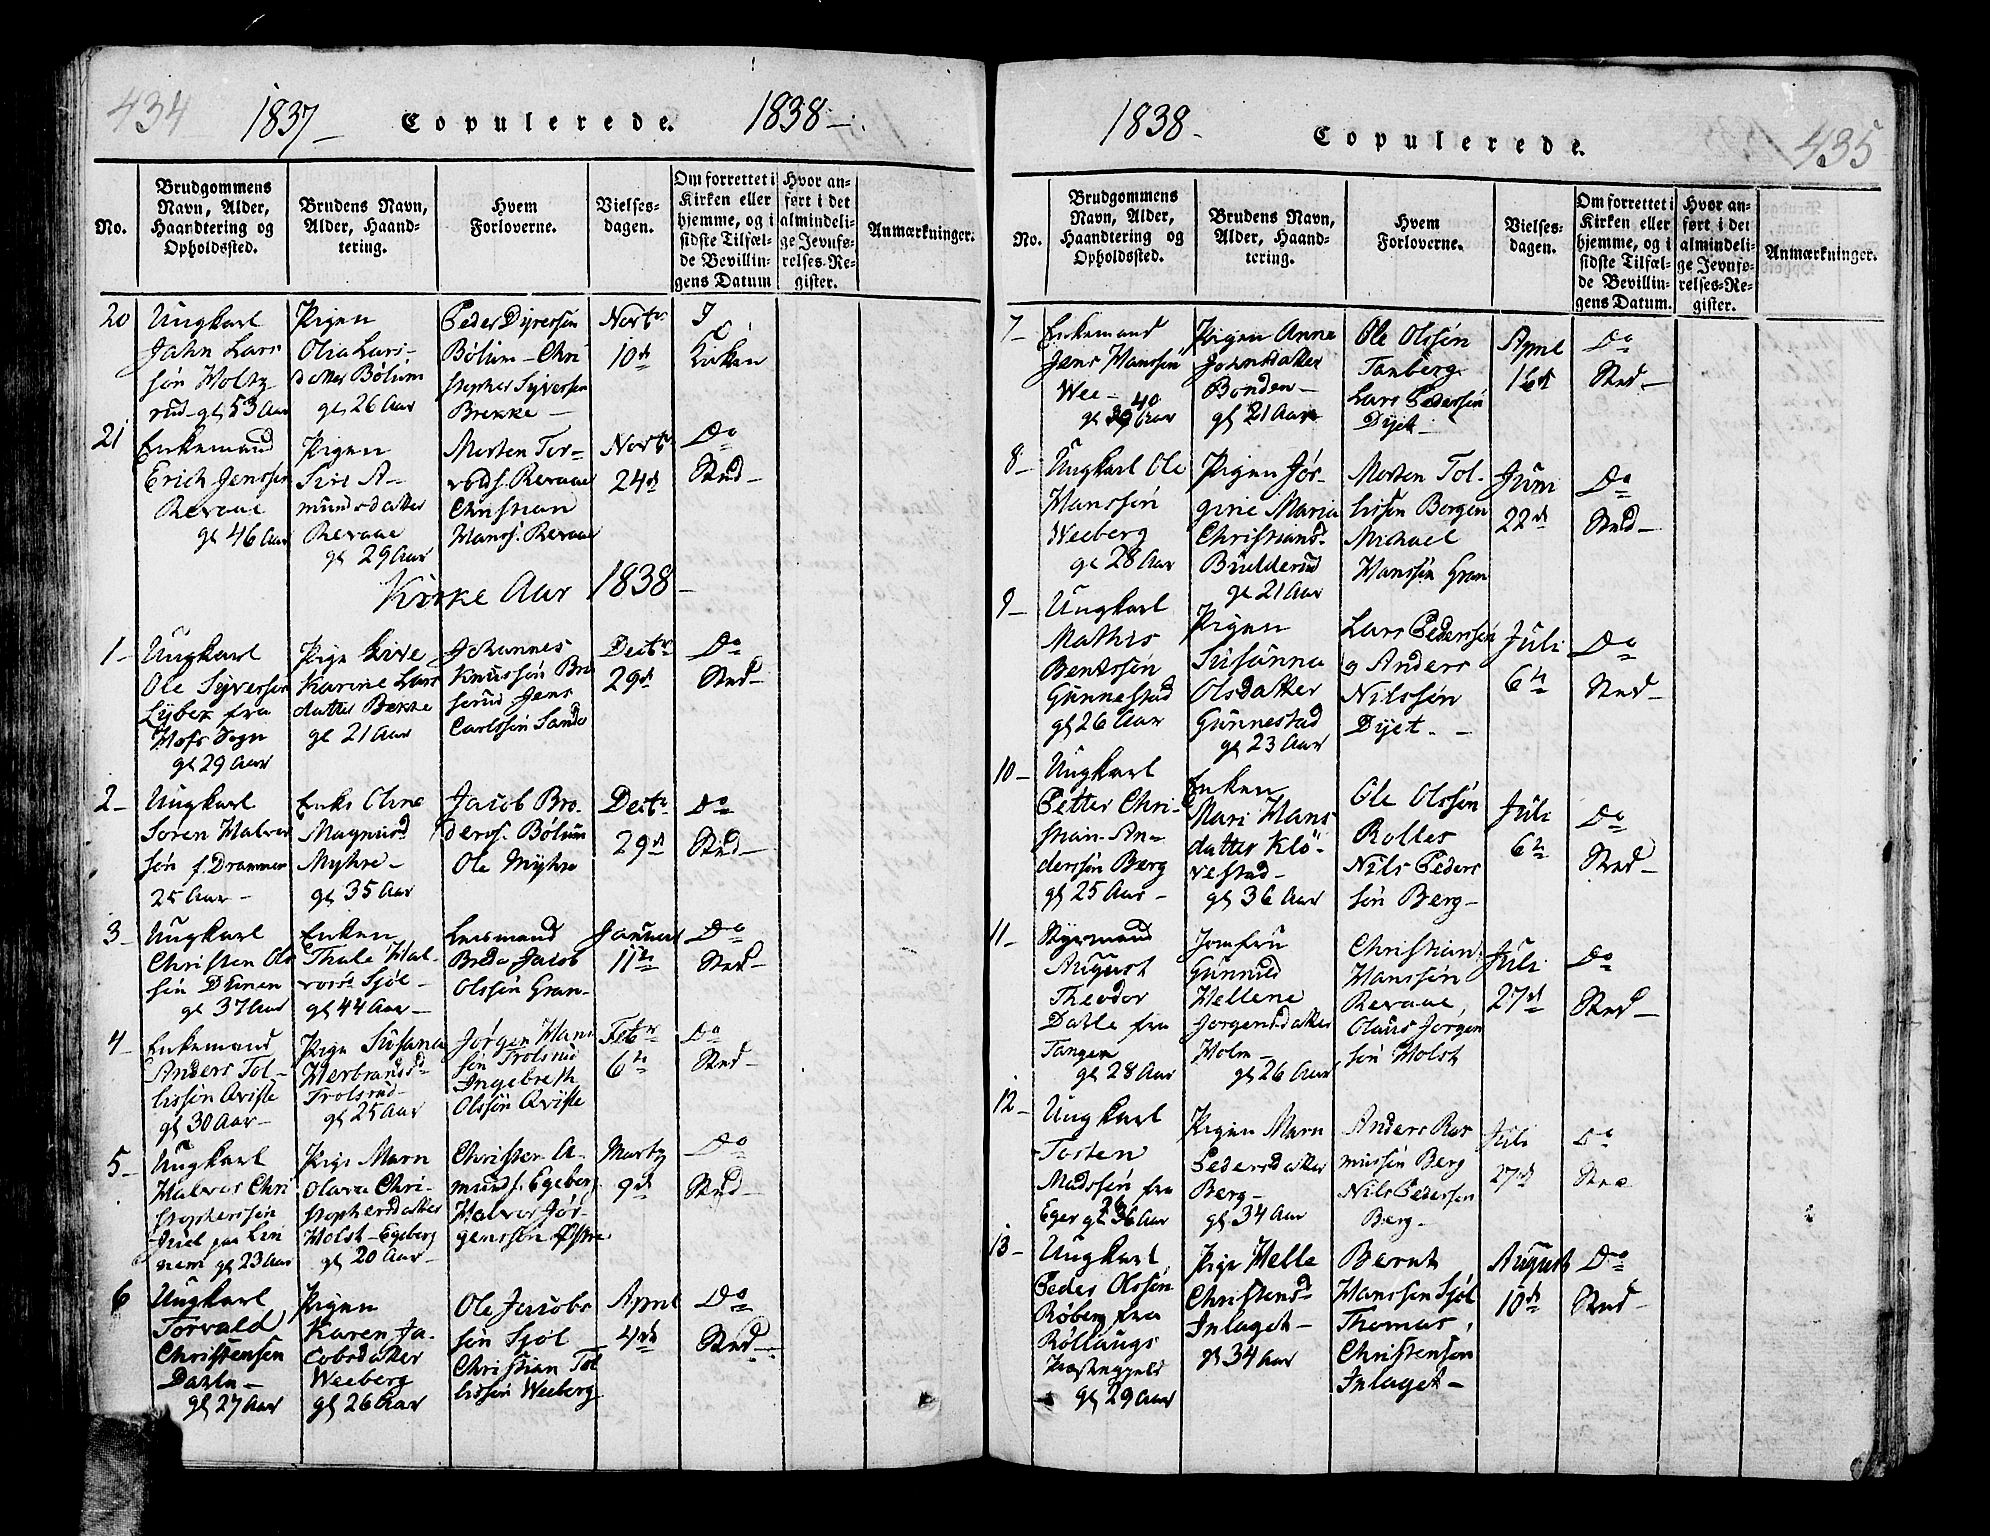 434
1837
Copulerede.
1838
No.
Brudgommens Navn, Alder, Haandtering og Opholdssted.
Brudens Navn, Alder, Haandtering.
Hvem Forloverne.
Vielses-dagen.
Om forrettet i Kirken eller hjemme, og i sidste Tilfælde Bevillingens Datum
Hvor anført i det almindelige Jevnførelses-Register.
Anmærkninger.
20
Ungkarl
Jahn Lars
søn Holtz
rud gl 53 Aar
Pigen
Olia Lars-
datter Bölum
gl 26 Aar
Peder Dyresen
Bölum - Chri
stopher Syversen
Brekke
Novbr
10d
I
Kirken
21
Enkemand
Erich Jenssen
Revaae
gl 46 Aar
Pigen
Siri A-
mundsdatter
Revaae
gl 29 Aar
Morten Tor-
volds. Revaae
Christian
Hanss. Revaae
Novbr
24d
Do
Sted
Kirke Aar 1838
1
Ungkarl
Ole Syversen
Lyber fra
Hofs Sogn
gl 29 Aar
Pige Live
Karine Lars
datter Bekke
gl 21 Aar
Johannes
Knussön Bra
serud Jens
Carlssön Sande
Decbr
29d
Do
Sted
2
Ungkarl
Søren Halvor
søn f. Drammen
25 Aar
Enke Oline
Magnusd
Myhre
gl 35 Aar
Jacob Bro-
ders. Bölum
Ole Myhre
Decbr
29d
Do
Sted
3
Ungkarl
Christen Ols
sön Dunen
gl 37 Aar
Enken
Thale Hal-
vors. Sjöl
gl 44 Aar
Lensmand
Brede Jacob
Olssön Gran
Januari
11te
Do
Sted
4
Enkemand
Anders Tol-
lissön Qviste
gl 30 Aar
Pige Susana
Herbrandsd
Trolsrud
gl 25 Aar
Jørgen Hans
sön Trolsrud
Ingebreth
Olssön Qviste
Febr
6te
Do
Sted
5
Ungkarl
Halvor Chri
stopherssön
Juel paa Lin
nem gl 23 Aar
Pige Marn
Olava Chri-
stophersdatter
Holst-Egeberg
gl 20 Aar
Christen A-
munds. Egeberg
Halvor Jør-
genssön Østre
Marty
9d
Do
Sted
6
Ungkarl
Torvald
Christensen
Dahle
gl 27 Aar
Pigen
Karen Ja-
cobsdatter
Weeberg
gl 26 Aar
Ole Jacobs
sön Sjöl
Christian Tol
lissön Weeberg
April
4de
Do
Sted
1838
Copulerede.
435
No.
Brudgommens Navn, Alder, Haandtering og Opholdssted.
Brudens Navn, Alder, Haandtering.
Hvem Forloverne.
Vielses-dagen.
Om forrettet i Kirken eller hjemme, og i sidste Tilfælde Bevillingens Datum.
Hvor anført i det almindelige Jevnførelses-Register.
Anmærkninger.
7
Enkemand
Jens Hanssön
Wee
gl 40 Aar
Pigen Anne
Johnsdatter
Bonden
gl 21 Aar
Ole Olssön
Tanberg
Lars Pederssön
Dyet
April
16d
Do
Sted
8
Ungkarl Ole
Hanssön
Weeberg
gl 28 Aar
Pigen Jør-
gine Maria
Christiansd.
Bulderud
gl 21 Aar
Morten Tol-
lissön Borgen
Michael
Hanssön Gran
Juni
22d
Do
Sted
9
Ungkarl
Mathis
Bentssön
Gunnestad
gl 26 Aar
Pigen
Susanna
Olsdatter
Gunnestad
gl 23 Aar
Lars Pederssön
og Anders
Nilssön
Dyet
Juli
6te
Do
Sted
10
Ungkarl
Petter Chri-
stian An-
derssön Berg
gl 25 Aar
Enken
Mari Hans
datter Klö-
vestad
gl 36 Aar
Ole Olssön
Rolles
Nils Peders
sön Berg
Juli
6te
Do
Sted
11
Styrmand
August
Theodor
Dahle fra
Tangen
gl 28 Aar
Jomfru
Gunnild
Hellene
Jorgensdatter
Holm
gl 26 Aar
Christian
Hanssön
Revaae
Olaus Jörgen
sön Holst
Juli
27d
Do
Sted
12
Ungkarl
Tosten
Madssön fra
Eger gl 36 Aar
Pigen Marn
Pedersdatter
Berg
gl 34 Aar
Anders Ras
mussön Berg
Nils Pederssen
Berg
Juli
27d
Do
Sted
13
Ungkarl
Peder Olssön
Röberg fra
Röllaugs
Præstegjeld
gl 29 Aar
Pige Helle
Christensd
Inlaget
gl 34 Aar
Bernt
Hanssen Sjöl
Thomas
Christensen
Inlaget
August
10de
Do
Sted